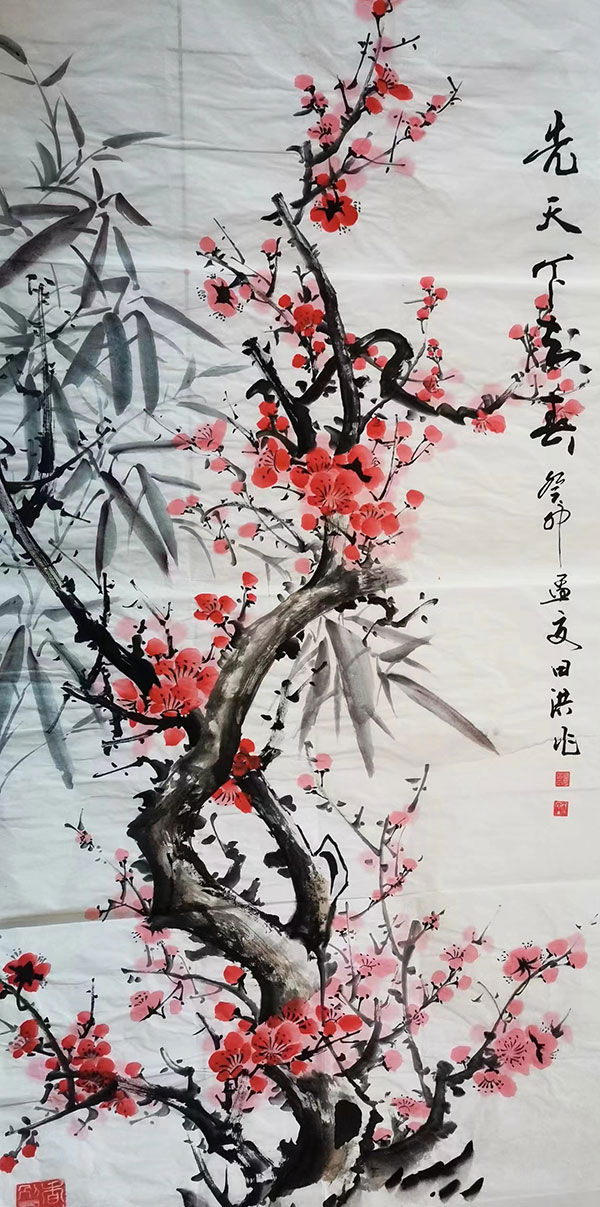 先天下春 癸卯孟夏田洪兆